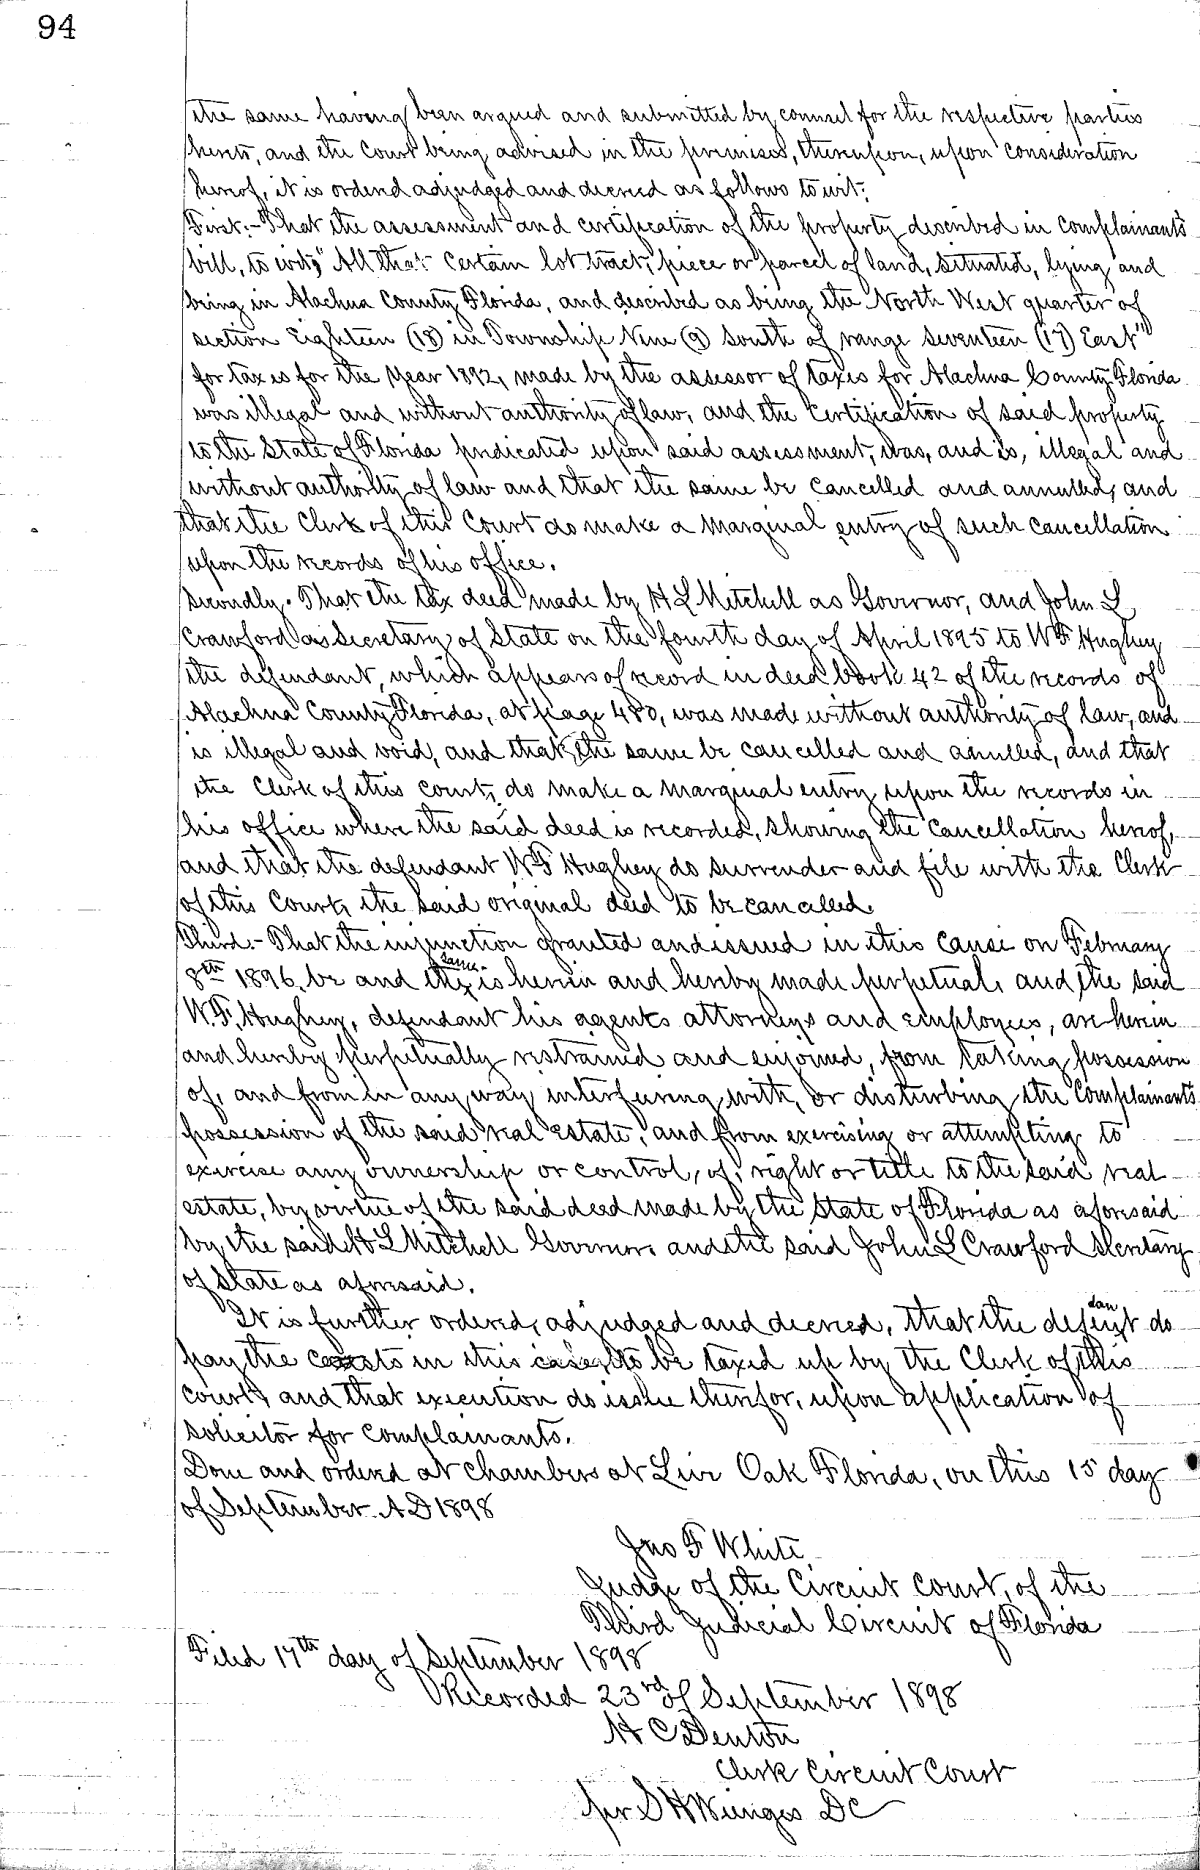 94
the same having been argued and submitted by counsel for the respective parties
hereto, and the Court being advised in the premises, thereupon, upon consideration
hereof, it is ordered adjudged and decreed as follows to wit:
First:- That the assessment and certification of the property described in complainants
bill, to wit; "All that certain lot tract, piece or parcel of land, situated, lying and
being in Alachua County Florida, and described as being the North West quarter of
section Eighteen (18) in Township Nine (9) South of range Seventeen (17) East"
for taxes for the year 1892, made by the assessor of taxes for Alachua County Florida
was illegal and without authority of law, and the certification of said property
to the State of Florida predicated upon said assessment, was, and is, illegal and
without authority of law and that the same be cancelled and annulled, and
that the Clerk of this Court do make a marginal entry of such cancellation
upon the records of his office.
Secondly. That the tax deed made by H L Mitchell as Governor, and John L
Crawford as Secretary of State on the fourth day of April 1895 to W F Hughey
the defendant, which appears of record in deed book 42 of the records of
Alachua County Florida, at page 480, was made without authority of law, and
is illegal and void, and that the same be cancelled and anulled, and that
the Clerk of this court, do make a marginal entry upon the records in
his office where the said deed is recorded, showing the cancellation hereof,
and that the defendant W F Hughey do surrender and file with the Clerk
of this Court, the said original deed to be cancelled.
Third.- That the injunction granted and issued in this cause on February
8th 1896, be and the same is herein and hereby made perpetual, and the said
W. F. Hughey, defendant his agents attorneys and employees, are herein
and hereby perpetually restrained and enjoined, from taking possession
of, and from in any way interfering with, or disturbing the Complainants
possession of the said real estate, and from exercising or attempting to
exercise any ownership or control, of, right or title to the said real
estate, by virtue of the said deed made by the State of Florida as aforesaid
by the said H L Mitchell Governor, and the said John L Crawford Secretary
of State as aforesaid.
It is further ordered, adjudged and decreed, that the defendant do
pay the costs in this case, to be taxed up by the Clerk of this
court, and that execution do issue therefor, upon application of
solicitor for complainants.
Done and ordered at chambers at Live Oak Florida, on this 15 day
of September A D 1898
Jno F White
Judge of the Circuit Court, of the
Third Judicial Circuit of Florida
Filed 17th day of September 1898
Recorded 23rd of September 1898
H C Denton
Clerk Circuit Court
per S H Wienges DC